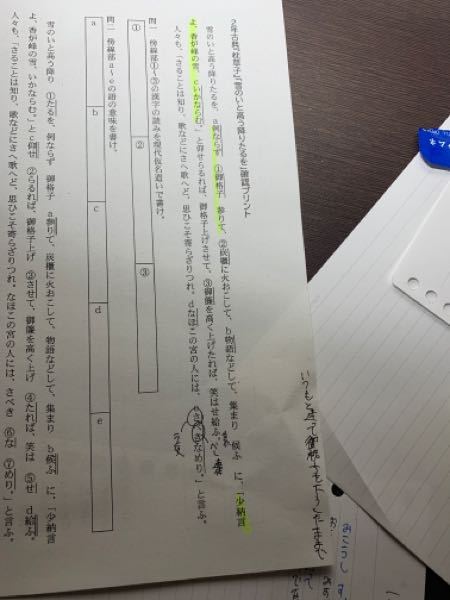 2年古典『枕草子』「雪のいと高う降りたるを」確認プリント
雪のいと高う降りたるを、a例ならず ①御格子 参りて、②炭櫃に火おこして、b物語などして、集まり 候ふ に、「少納言
よ、香炉峰の雪、cいかならむ。」と仰せらるれば、御格子上げさせて、③御簾を高く上げたれば、笑はせ給ふ。
人々も、「さることは知り、歌などにさへ歌へど、思ひこそ寄らざりつれ。dなほこの宮の人には、eさべきなめり。」と言ふ。
問一 傍線部①~③の漢字の読みを現代仮名遣いで書け。
① ② ③
問二 傍線部a~eの語の意味を書け。
a b c d e
雪のいと高う降り ①たるを、例ならず 御格子 a参りて、炭櫃に火おこして、物語などして、集まり b候ふ に、「少納言
よ、香炉峰の雪、いかならむ。」とc仰せ ②らるれば、御格子上げ ③させて、御簾を高く上げ ④たれば、笑は ⑤せ d給ふ。
人々も、「さることは知り、歌などにさへ歌へど、思ひこそ寄らざりつれ。なほこの宮の人には、さべき ⑥な ⑦めり。」と言ふ。